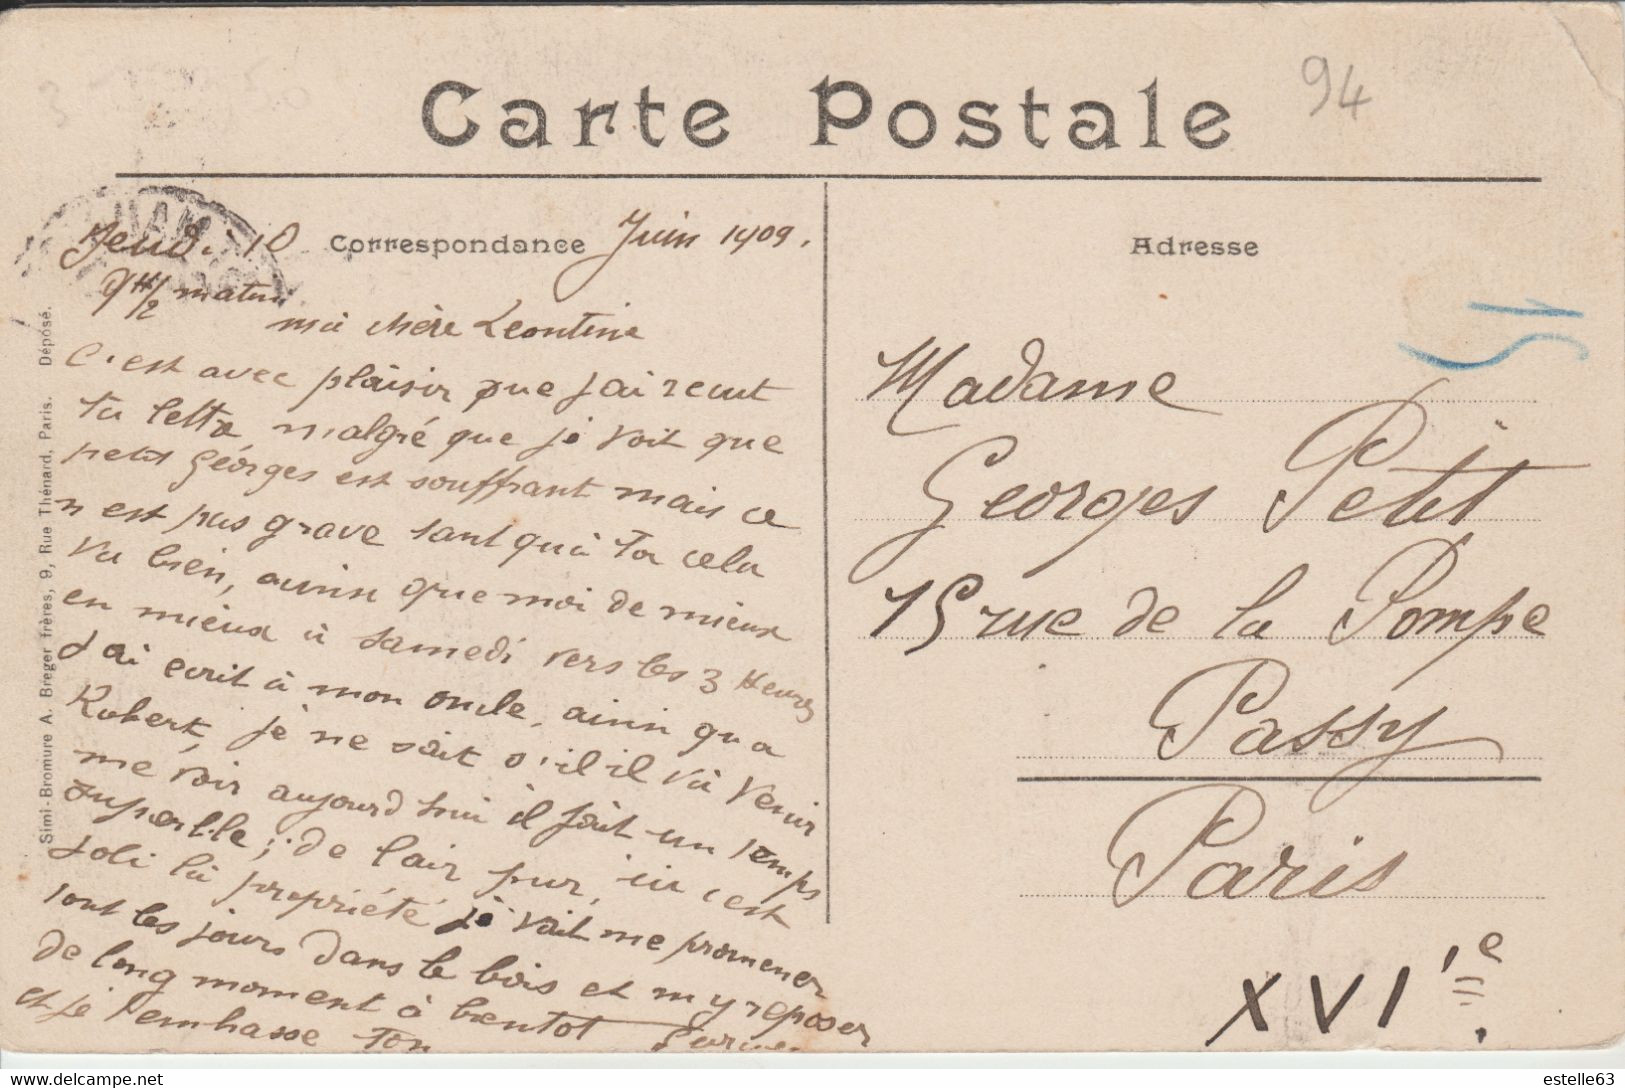 94
Carte Postale
Correspondance
Adresse
Jeudi 10 Juin 1909.
9H 1/2 matin
ma chère Leontine
C'est avec plaisir que j'ai recut
ta lettre malgré que je voit que
petit Georges est souffrant mais ce
n est pas grave tant qu'à toi cela
va bien, ainsi que moi de mieux
en mieux à samedi vers les 3 Heures
J'ai ecrit à mon oncle, ainsi qu a
Robert, je ne sait s'il il va venir
me voir aujourd hui il fait un temps
superbe; de l'air pur, ici c'est
Joli la propriété je vait me promener
tout les jours dans le bois et m'y reposer
de long moment à bientot
et je t'embrasse ton
Simi-Bromure A. Breger frères, 9, Rue Thénard, Paris. Déposé.
Madame
Georges Petit
15 rue de la Pompe
Passy
Paris
XVIe
www.delcampe.net
estelle63